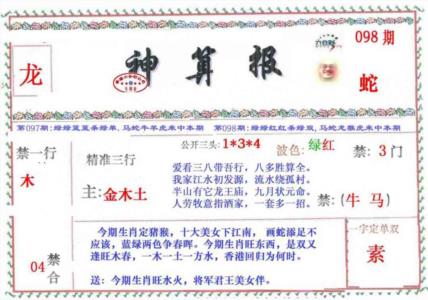 098期
神算报
龙
蛇
第097期:绿绿蓝蓝条绿单,马蛇牛羊虎来中本期 第098期:绿绿红红条绿双,马蛇龙猴虎来中本期
禁一行
木
精准三行
主:金木土
公开三头:1*3*4
波色:绿红
爱看三八带吾行,八多胜算全。
我家江水初发源,流水绕孤村。
半山有它龙王庙,九月状元命。
人劳牧意指酒家,一套多一招。
禁:3门
禁:(牛马)
04禁合
今期生肖定猪猴,十大美女下江南,画蛇添足不
应该,蓝绿两色争春晖。今期生肖旺东西,是双又
逢旺木春,一木一土一方水,香港回归为何时。
送:今期生肖旺水火,将军君王美女伴。
一字定单双
素